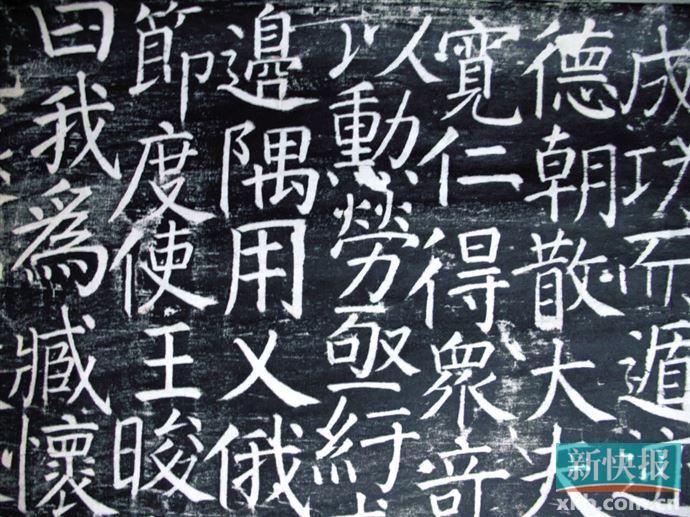 成功遁
德朝散大夫
寬仁得眾奇
以勳勞亟紆
邊隅用乂俄
節度使王晙
曰我為臧懷
新快报
xkb.com.cn